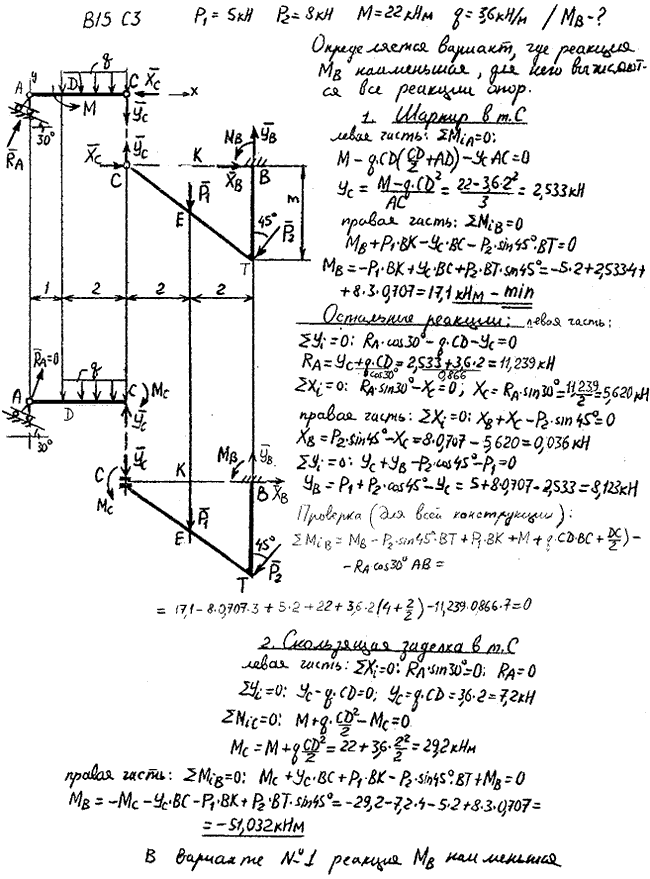 В15 С3 P₁ = 5кН P₂ = 8кН M = 22кНм q = 3,6кН/м / M_B - ?
Определяется вариант, где реакция
M_B наименьшая, для него вычисляют-
ся все реакции опор.
1. Шарнир в т.С
левая часть: ΣM_iA=0:
M - q·CD(CD/2 + AD) - Y_C AC = 0
Y_C = (M - q·CD²)/AC = (22 - 3,6·2²)/3 = 2,533кН
правая часть: ΣM_iB=0
M_B + P₁·BK - Y_C·BC - P₂·sin45°·BT = 0
M_B = -P₁·BK + Y_C·BC + P₂·BT·sin45° = -5·2 + 2,533·4 +
+ 8·3·0,707 = 17,1 кНм - min
Остальные реакции: левая часть:
ΣY_i=0: R_A·cos30° - q·CD - Y_C = 0
R_A = (Y_C + q·CD)/cos30° = (2,533 + 3,6·2)/0,866 = 11,239кН
ΣX_i=0: R_A·sin30° - X_C = 0; X_C = R_A·sin30° = 11,239/2 = 5,620кН
правая часть: ΣX_i=0: X_B + X_C - P₂·sin45° = 0
X_B = P₂·sin45° - X_C = 8·0,707 - 5,620 = 0,036кН
ΣY_i=0: Y_C + Y_B - P₂·cos45° - P₁ = 0
Y_B = P₁ + P₂·cos45° - Y_C = 5 + 8·0,707 - 2,533 = 8,123кН
Проверка (для всей конструкции):
ΣM_iB = M_B - P₂·sin45°·BT + P₁·BK + M + q·CD(BC + DC/2) -
- R_A cos30° AB =
= 17,1 - 8·0,707·3 + 5·2 + 22 + 3,6·2(4 + 2/2) - 11,239·0,866·7 = 0
2. Скользящая заделка в т.С
левая часть: ΣX_i=0: R_A·sin30° = 0; R_A = 0
ΣY_i=0: Y_C - q·CD = 0; Y_C = q·CD = 3,6·2 = 7,2кН
ΣM_iC=0: M + q·CD²/2 - M_C = 0
M_C = M + q CD²/2 = 22 + 3,6·2²/2 = 29,2кНм
правая часть: ΣM_iB=0: M_C + Y_C·BC + P₁·BK - P₂·sin45°·BT + M_B = 0
M_B = -M_C - Y_C·BC - P₁·BK + P₂·BT·sin45° = -29,2 - 7,2·4 - 5·2 + 8·3·0,707 =
= -51,032кНм
В варианте №1 реакция M_B наименьшая
y
A D q C X_C x
M Y_C
30° R_A
Y_C
X_C C K M_B Y_B
X_B B
P₁ 3
E 45° P₂
T
1 2 2 2
R_A=0 q
A D C M_C
30° Y_C
Y_C M_B Y_B
C K B X_B
M_C P₁
E 45°
T P₂